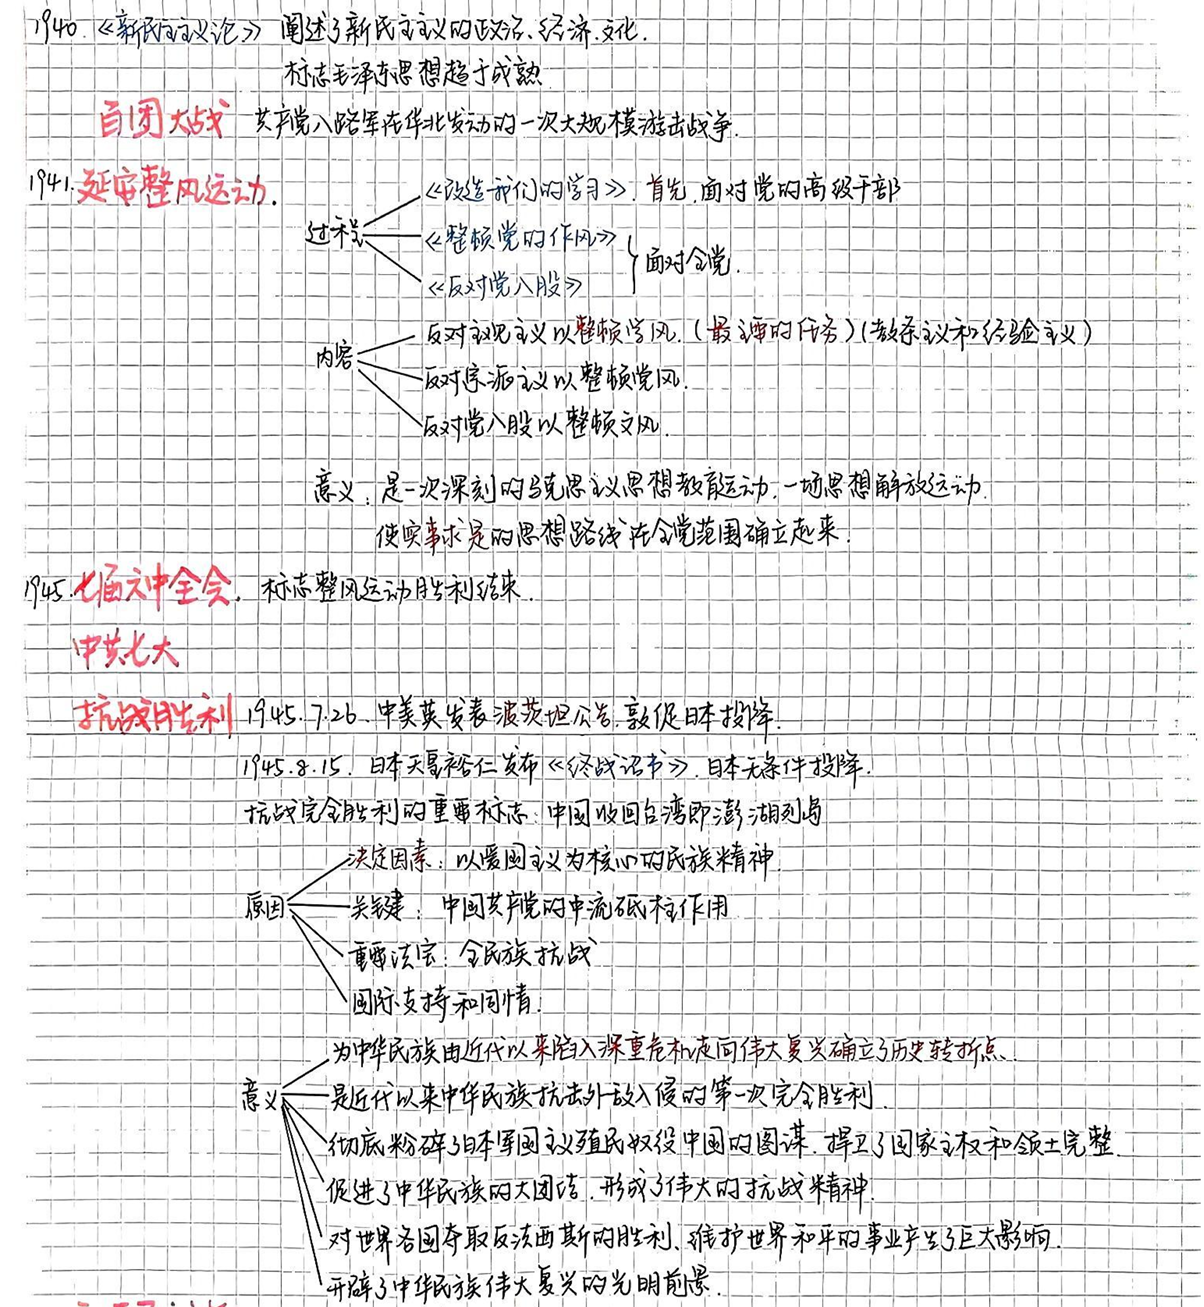 1940.《新民主主义论》 阐述了新民主主义的政治、经济、文化.
标志毛泽东思想趋于成熟
百团大战 共产党八路军在华北发动的一次大规模游击战争.
1941.延安整风运动.
《改造我们的学习》. 首先.面对党的高级干部
过程 《整顿党的作风》
面对全党.
《反对党八股》
反对主观主义以整顿学风.(最主要的任务)(教条主义和经验主义)
内容
反对宗派主义以整顿党风.
反对党八股以整顿文风.
意义: 是一次深刻的马克思主义思想教育运动.一场思想解放运动.
使实事求是的思想路线在全党范围确立起来.
1945.七届六中全会. 标志整风运动胜利结束.
中共七大
抗战胜利 1945.7.26.中美英发表波茨坦公告.敦促日本投降.
1945.8.15. 日本天皇裕仁发布《终战诏书》.日本无条件投降.
抗战完全胜利的重要标志:中国收回台湾即澎湖列岛
决定因素: 以爱国主义为核心的民族精神.
原因 关键: 中国共产党的中流砥柱作用
重要法宝: 全民族抗战
国际支持和同情.
为中华民族由近代以来陷入深重危机走向伟大复兴确立了历史转折点.
意义 是近代以来中华民族抗击外敌入侵的第一次完全胜利.
彻底粉碎了日本军国主义殖民奴役中国的图谋.捍卫了国家主权和领土完整.
促进了中华民族的大团结.形成了伟大的抗战精神.
对世界各国夺取反法西斯的胜利、维护世界和平的事业产生了巨大影响.
开辟了中华民族伟大复兴的光明前景.